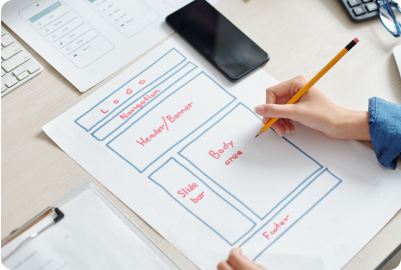 LOGO
Navigation
Header/Banner
Body
area
Slide
bar
Footer